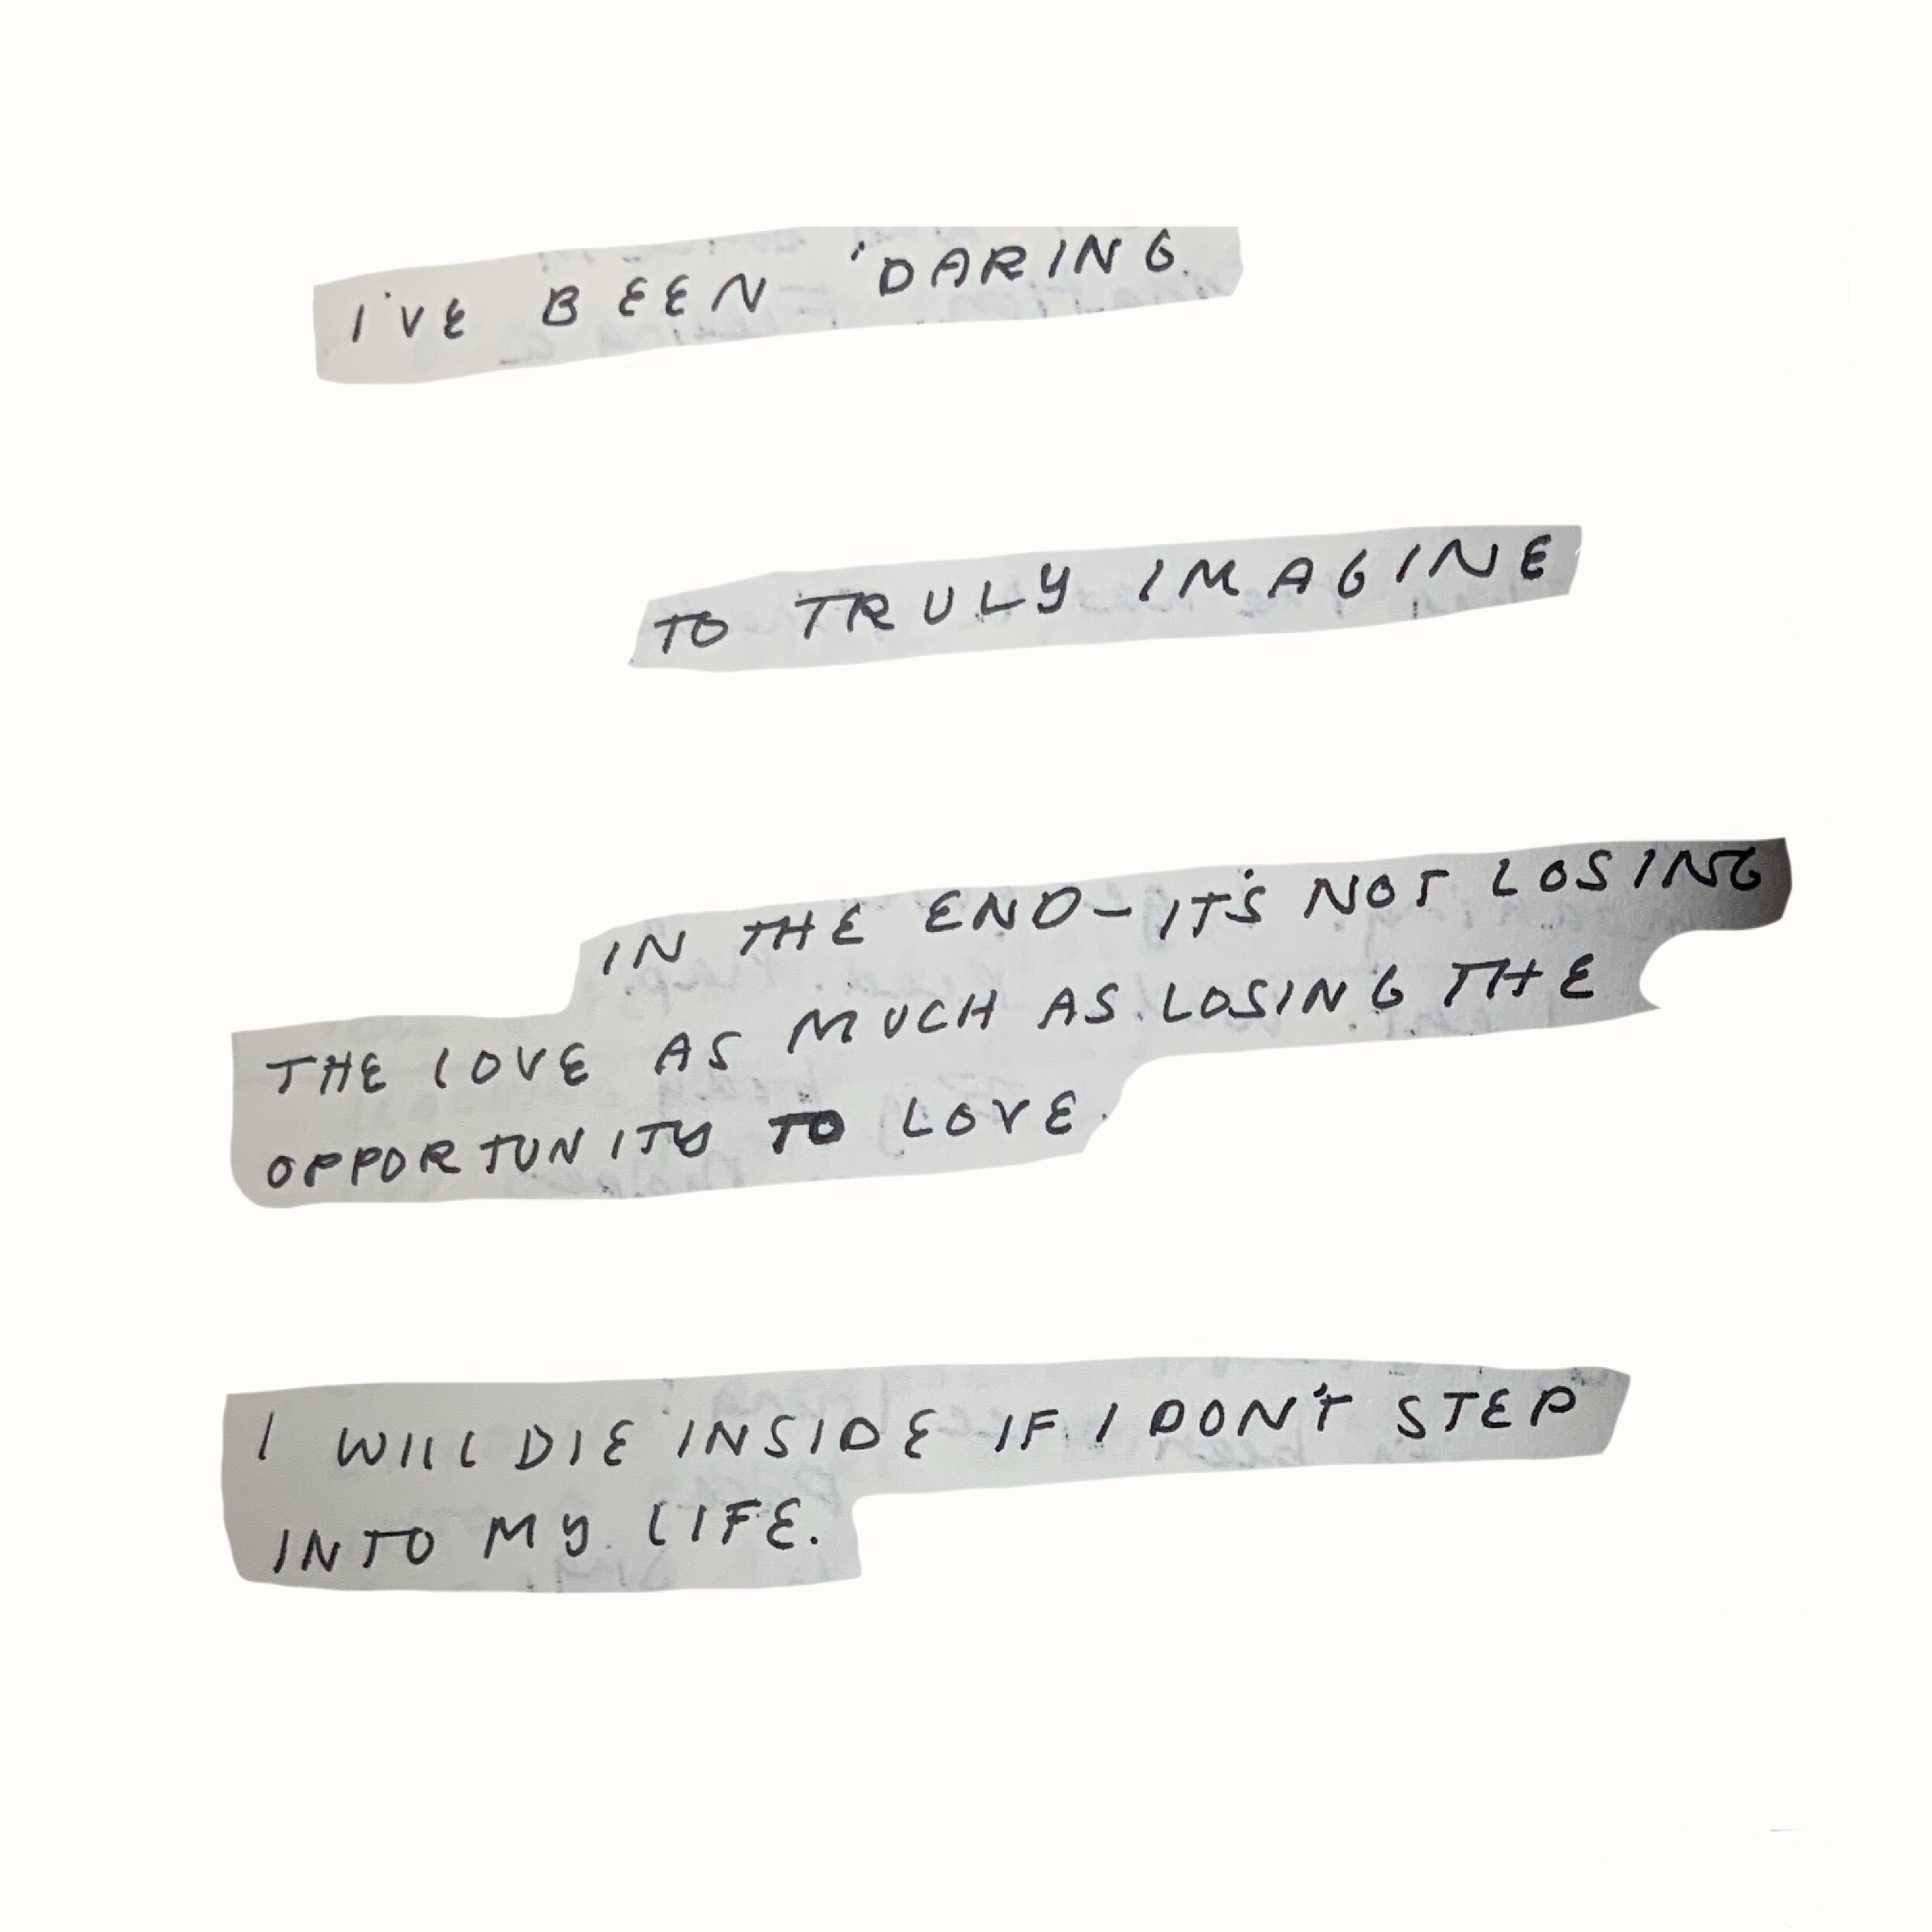 I'VE BEEN 'DARING
TO TRULY IMAGINE
IN THE END - IT'S NOT LOSING
THE LOVE AS MUCH AS LOSING THE
OPPORTUNITY TO LOVE.
I WILL DIE INSIDE IF I DON'T STEP
INTO MY LIFE.